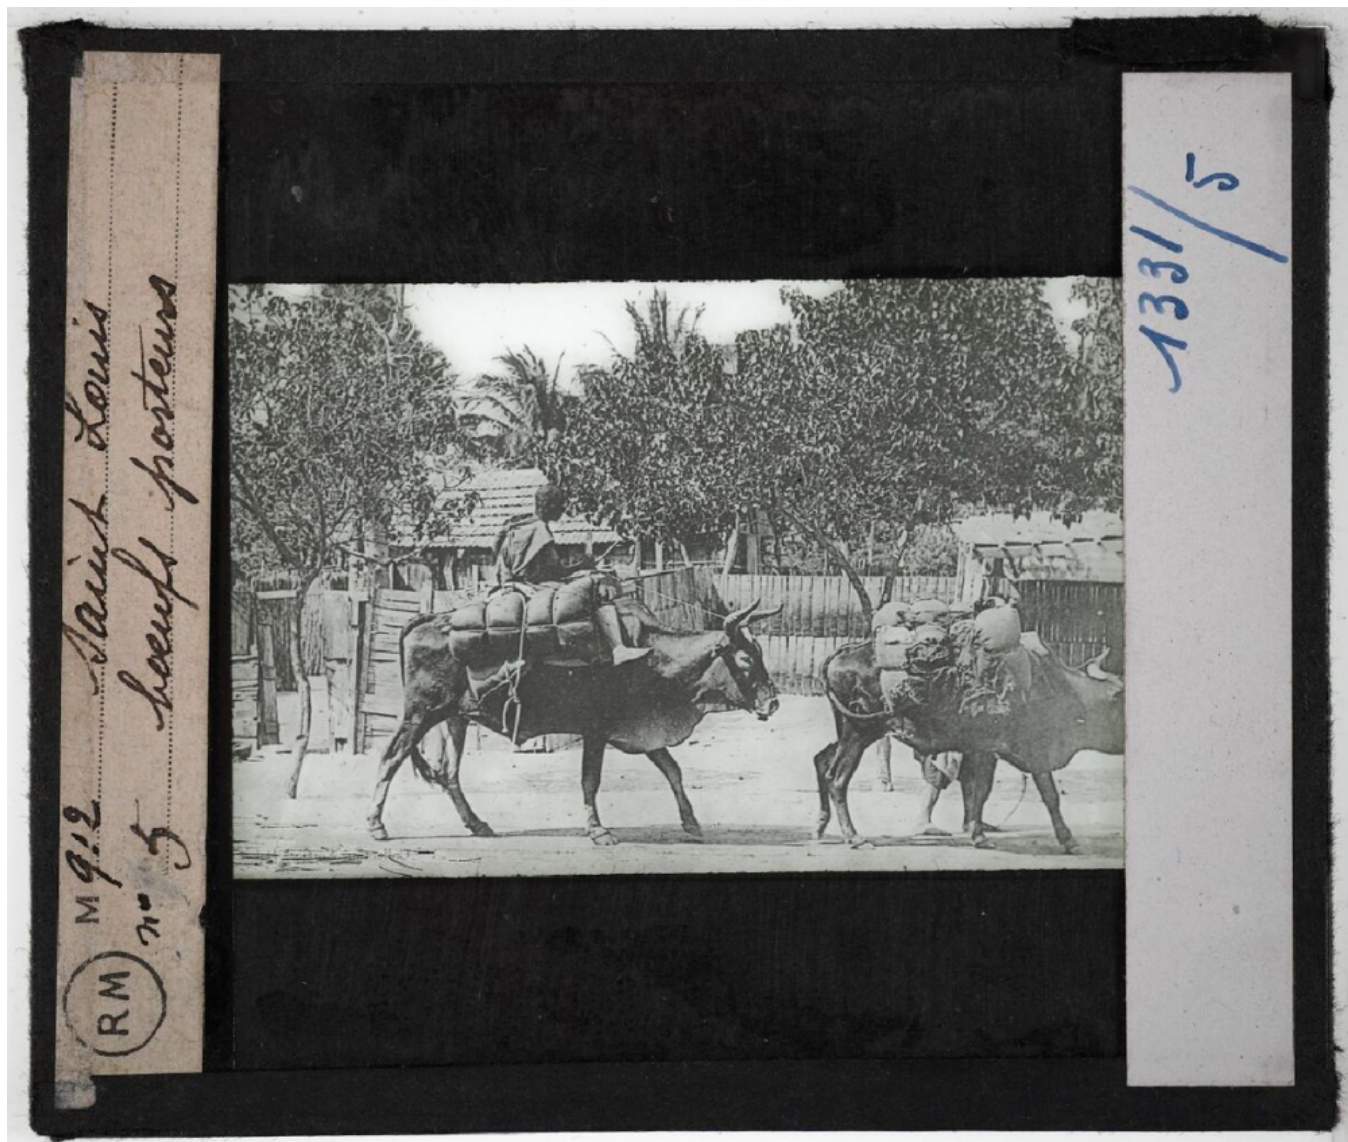 RM
M 912 Saint Louis
n° 5 boeufs porteurs
1331/5